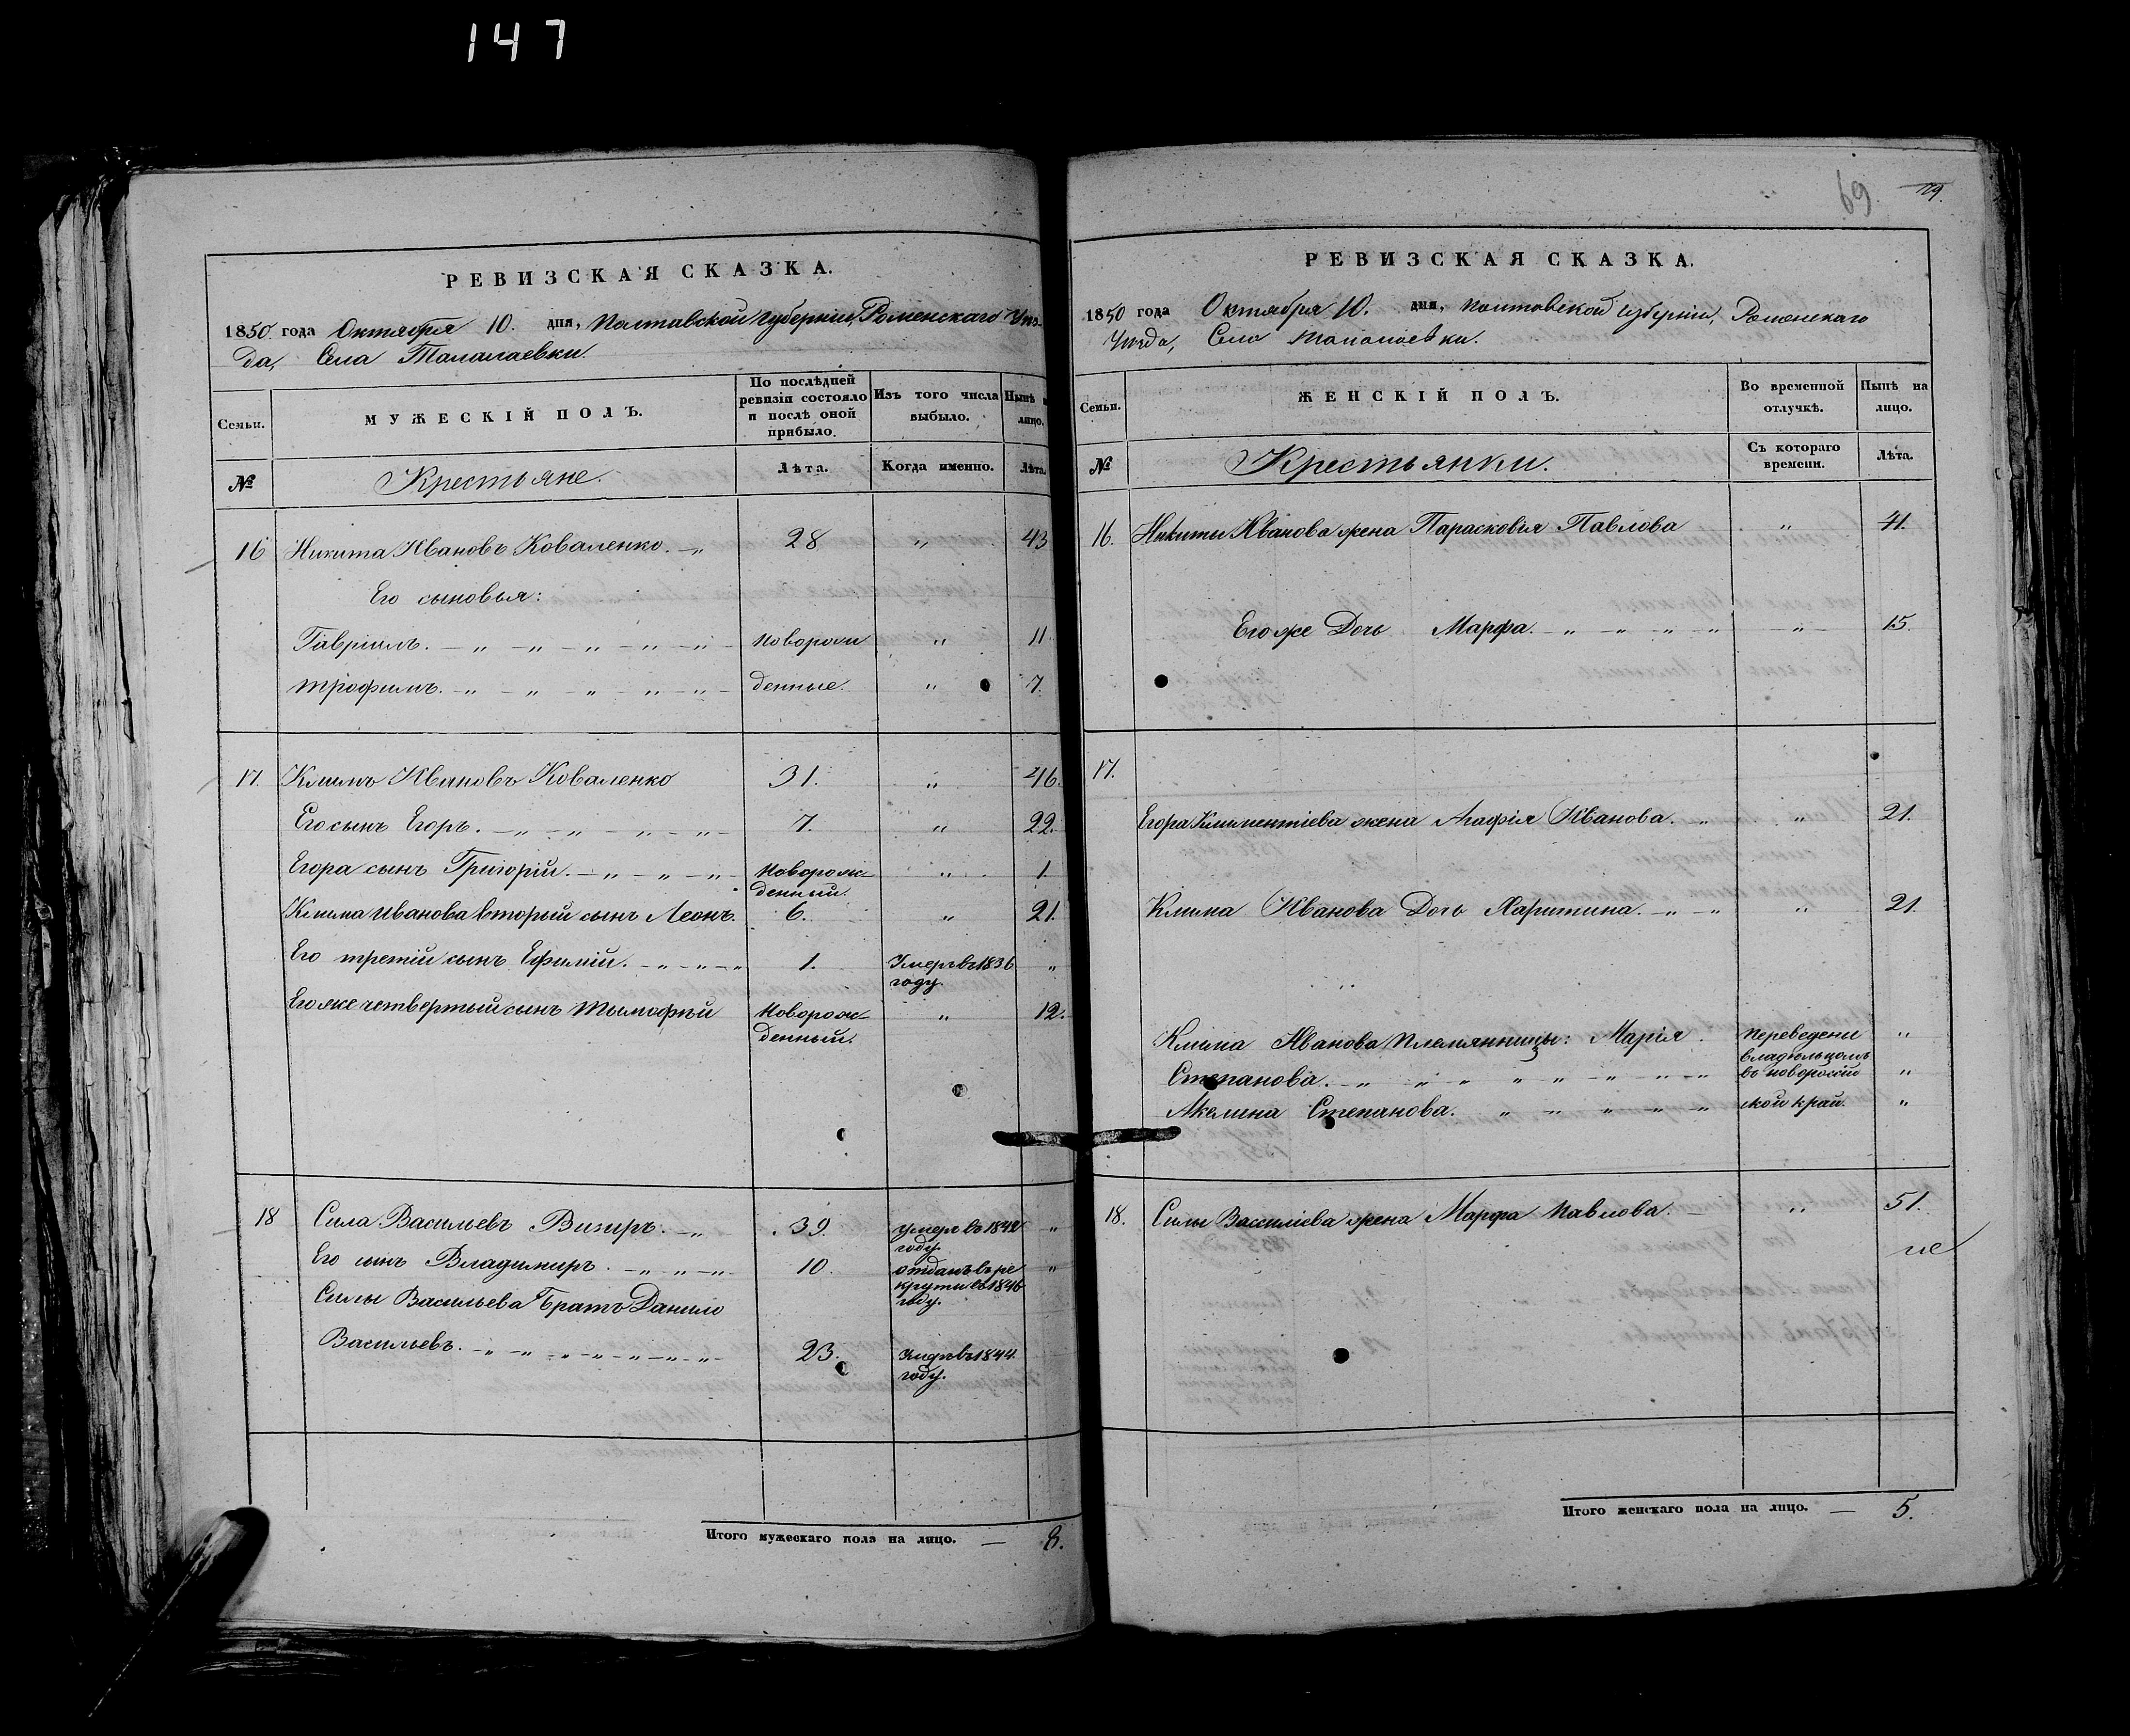 147
РЕВИЗСКАЯ СКАЗКА.
1850 года Октября 10. дня, Полтавской Губерніи, Роменскаго Уѣз-
да, Села Талалаевки.
Семьи. МУЖЕСКІЙ ПОЛЪ. По послѣдней ревизіи состояло и послѣ оной прибыло. Изъ того числа выбыло. Нынѣ на лицо.
№ Крестьяне. Лѣта. Когда именно. Лѣта.
16 Никита Ивановъ Коваленко. — „ 28 „ 43
Его сыновья:
Гавріилъ. — „ — „ — „ — „ — „ — Новорож „ 11.
Трофимъ. — „ — „ — „ — „ — „ — денные. „ 7.
17. Климъ Ивановъ Коваленко 31. „ 46.
Его сынъ Егоръ. — „ — „ — „ — „ — 7. „ 22.
Егора сынъ Григорій. — „ — „ — „ — Новорож- „ 1
денный.
Клима Иванова вторый сынъ Леонъ. 6. „ 21.
Его третій сынъ Ефимій. — „ — „ — „ 1. Умеръ въ 1836 „
году.
Его же четвертый сынъ Тимофѣй Новорож- „ 12.
денный.
18 Сила Васильевъ Визиръ. — „ 39. умеръ въ 1842 „
году.
Его сынъ Владимиръ. — „ — „ — „ — 10. отданъ въ ре „
круты въ 1846
году.
Силы Васильева Братъ Данило
Васильевъ. — „ — „ — „ — „ — „ — „ — „ — 23. Умеръ въ 1844
году.
Итого мужескаго пола на лицо. — 8.
69 119.
РЕВИЗСКАЯ СКАЗКА.
1850 года Октября 10. дня, Полтавской Губерніи, Роменскаго
Уѣзда, Села Талалаевки.
Семьи. ЖЕНСКІЙ ПОЛЪ. Во временной отлучкѣ. Нынѣ на лицо.
№ Крестьянки. Съ котораго времени. Лѣта.
16. Никиты Иванова жена Парасковія Павлова „ 41.
Его же Дочь Марфа. — „ — „ — „ — „ — „ — 15.
17.
Егора Климентіева жена Агафія Иванова. „ „ 21.
Клима Иванова Дочь Харитина. — „ — „ „ 21.
Клима Иванова племянницы: Марія. Переведены „
владѣльцомъ
Степанова. — „ — „ — „ — „ — „ — „ — „ — въ новороссій „
Акелина Степанова. „ — „ — „ — „ — „ ской край. „
18. Силы Василіева жена Марфа Павлова. — „ 51.
Итого женскаго пола на лицо. — 5.